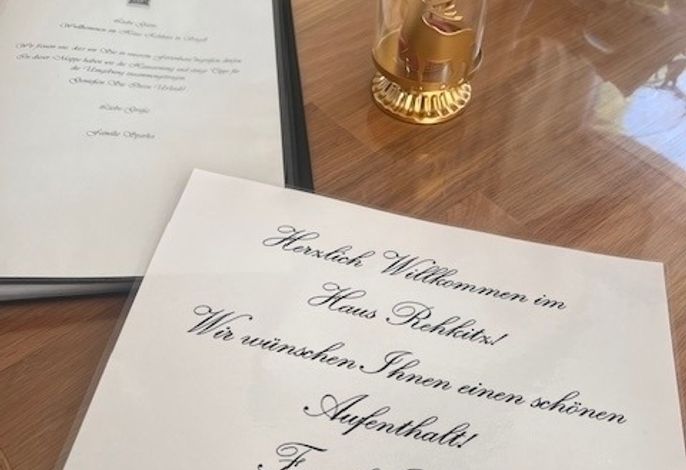 Liebe Gäste,
Willkommen im Haus Rehkitz in
Wir freuen uns, dass wir Sie in unserem begrüßen dürfen.
In dieser Mappe haben wir die Hausordnung und einige Tipps für
die Umgebung zusammengetragen.
Genießen Sie Ihren Urlaub!
Liebe Grüße
Familie
Herzlich Willkommen im
Haus Rehkitz!
Wir wünschen Ihnen einen schönen
Aufenthalt!